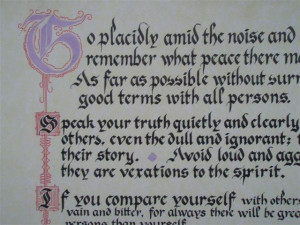 Go placidly amid the noise and
remember what peace there
As far as possible without
good terms with all persons.
Speak your truth quietly and clearly
others, even the dull and ignorant:
their story. Avoid loud and
they are vexations to the spirit.
If you compare yourself with others
vain and bitter, for always there will be
persons than yourself